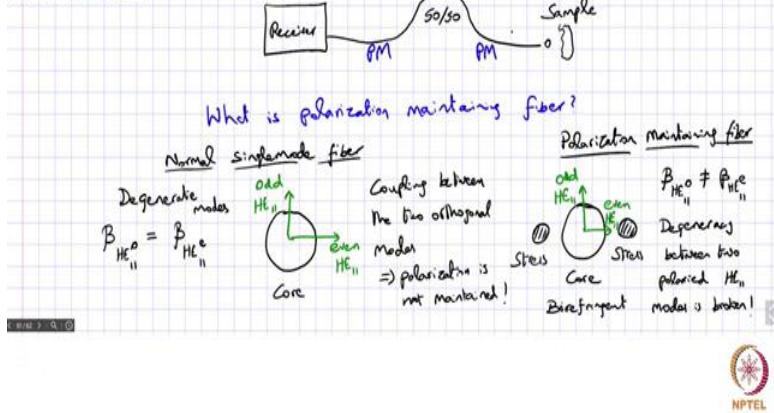 50/50
Sample
Receiver
PM
PM
What is polarization maintaining fiber?
Normal singlemode fiber
Degenerate modes
β HE11 o = β HE11 e
odd
HE11
even
HE11
Core
Coupling between
the two orthogonal
modes
=> polarization is
not maintained!
Polarization maintaining fiber
odd
HE11
even
HE11
Stress
Stress
Core
Birefringent
β HE11 o ≠ β HE11 e
Degeneracy
between two
polarized HE11
modes is broken!
NPTEL